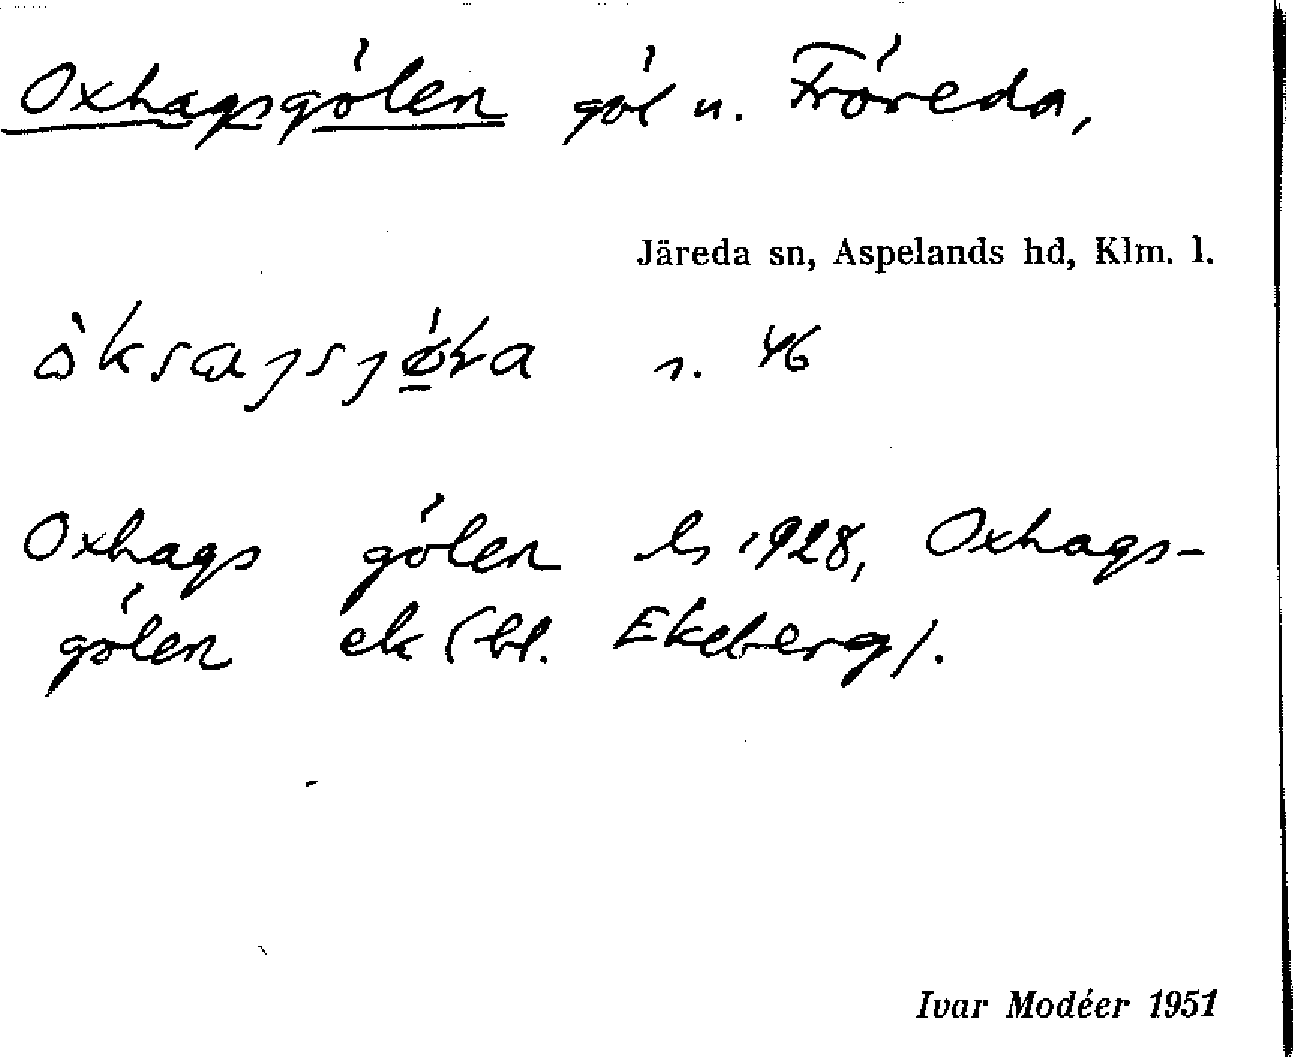 Oxhagsgölen göl n. Fröreda,
Järeda sn, Aspelands hd, Klm. l.
s. 46
Oxhags gölen ls 1928, Oxhags-
gölen ek (bl. Ekeberg).
Ivar Modéer 1951